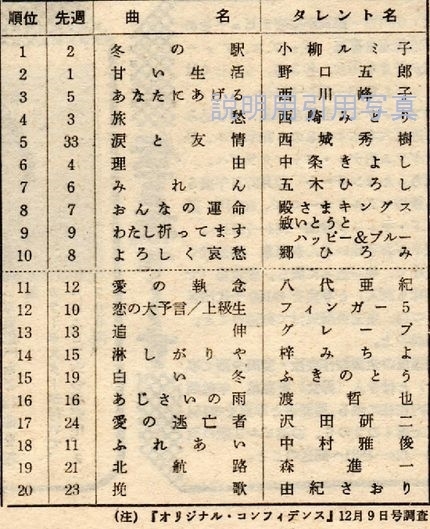 順位 先週 曲名 タレント名
1 2 冬の駅 小柳ルミ子
2 1 甘い生活 野口五郎
3 5 あなたにあげる 西川峰子
説明用引用写真
4 3 旅愁 西崎みどり
5 33 涙と友情 西城秀樹
6 4 理由 中条きよし
7 6 みれん 五木ひろし
8 7 おんなの運命 殿さまキングス
9 9 わたし祈ってます 敏いとうと
ハッピー&ブルー
10 8 よろしく哀愁 郷ひろみ
11 12 愛の執念 八代亜紀
12 10 恋の大予言/上級生 フィンガー5
13 13 追伸 グレープ
14 15 淋しがりや 梓みちよ
15 19 白い冬 ふきのとう
16 16 あじさいの雨 渡哲也
17 24 愛の逃亡者 沢田研二
18 11 ふれあい 中村雅俊
19 21 北航路 森進一
20 23 挽歌 由紀さおり
(注)『オリジナル・コンフィデンス』12月9日号調査